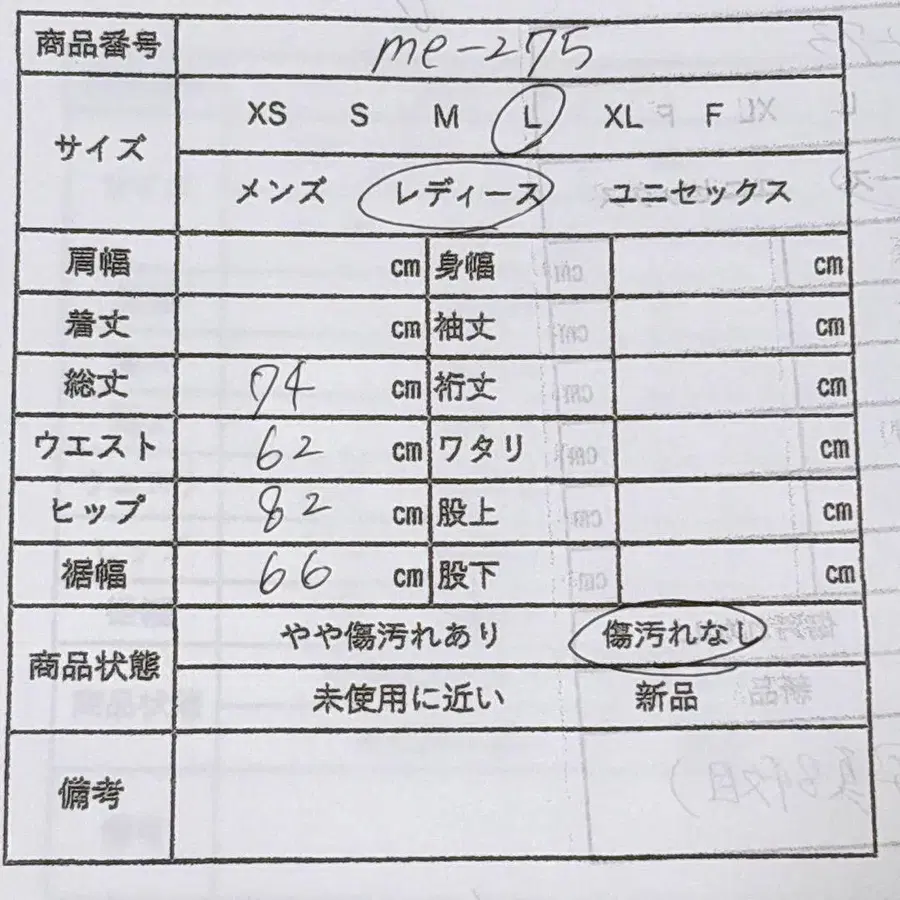 商品番号 me-275
サイズ XS S M L XL F
メンズ レディース ユニセックス
肩幅 cm 身幅 cm
着丈 cm 袖丈 cm
総丈 74 cm 裄丈 cm
ウエスト 62 cm ワタリ cm
ヒップ 82 cm 股上 cm
裾幅 66 cm 股下 cm
商品状態 やや傷汚れあり 傷汚れなし
未使用に近い 新品
備考